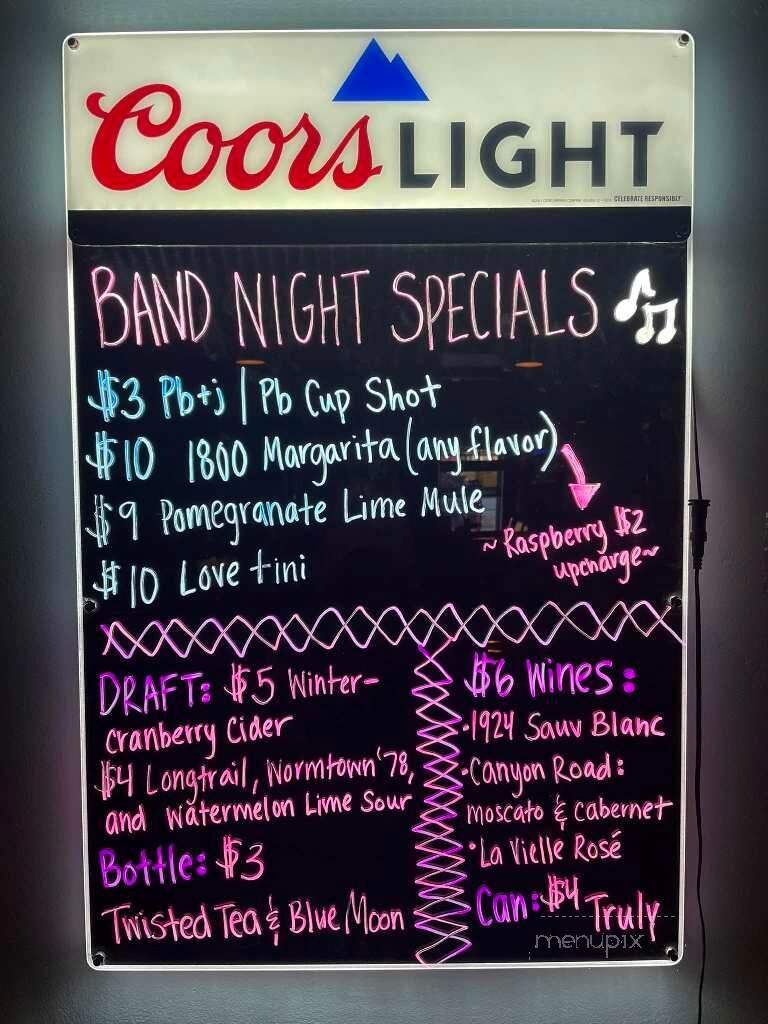 Coors LIGHT
CELEBRATE RESPONSIBLY
BAND NIGHT SPECIALS
$3 Pb+j | Pb Cup Shot
$10 1800 Margarita (any flavor)
$9 Pomegranate Lime Mule
~ Raspberry $2
upcharge~
$10 Love tini
DRAFT: $5 Winter-
Cranberry Cider
$4 Longtrail, Wormtown '78,
and Watermelon Lime Sour
Bottle: $3
Twisted Tea & Blue Moon
$6 Wines:
•1924 Sauv Blanc
•Canyon Road:
moscato & cabernet
•La Vielle Rosé
Can: $4 Truly
menupix